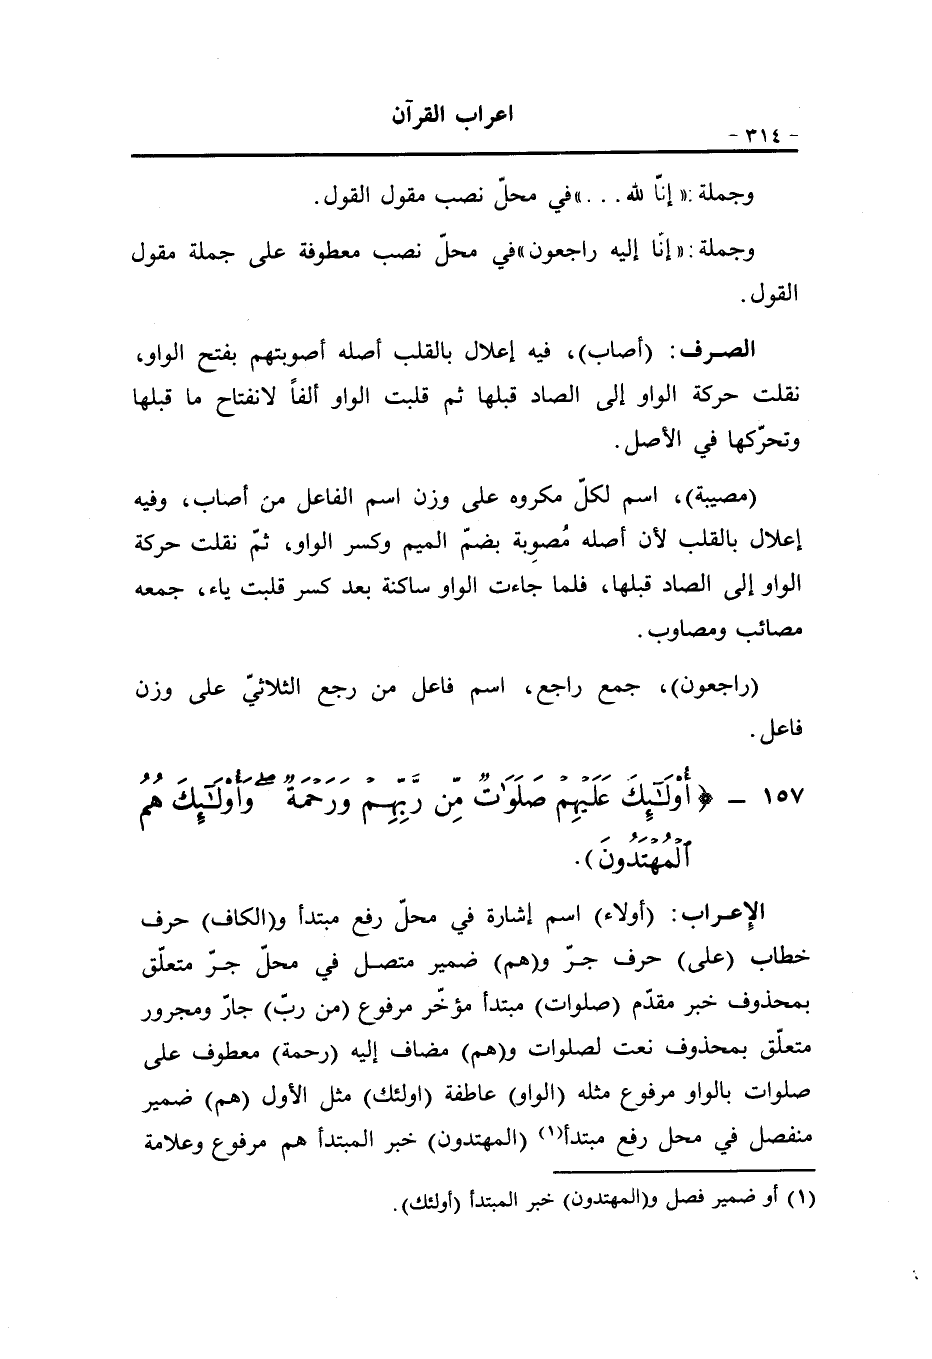 اعراب القرآن
- ٣١٤ -
وجملة :« إنّا لله . . . »في محلّ نصب مقول القول .
وجملة :« إنّا إليه راجعون»في محلّ نصب معطوفة على جملة مقول
القول .
الصرف : (أصاب)، فيه إعلال بالقلب أصله أصوبتهم بفتح الواو،
نقلت حركة الواو إلى الصاد قبلها ثم قلبت الواو ألفاً لانفتاح ما قبلها
وتحرّكها في الأصل .
(مصيبة)، اسم لكلّ مكروه على وزن اسم الفاعل من أصاب، وفيه
إعلال بالقلب لأن أصله مُصوِبة بضمّ الميم وكسر الواو، ثمّ نقلت حركة
الواو إلى الصاد قبلها، فلما جاءت الواو ساكنة بعد كسر قلبت ياء، جمعه
مصائب ومصاوب .
(راجعون)، جمع راجع، اسم فاعل من رجع الثلاثيّ على وزن
فاعل .
١٥٧ - ﴿ أُوْلَٰٓئِكَ عَلَيْهِمْ صَلَوَٰتٌ مِّن رَّبِّهِمْ وَرَحْمَةٌ ۖ وَأُوْلَٰٓئِكَ هُمُ
ٱلْمُهْتَدُونَ ) .
الإعراب : (أولاء) اسم إشارة في محلّ رفع مبتدأ و(الكاف) حرف
خطاب (على) حرف جرّ و(هم) ضمير متصل في محلّ جرّ متعلّق
بمحذوف خبر مقدّم (صلوات) مبتدأ مؤخّر مرفوع (من ربّ) جارّ ومجرور
متعلّق بمحذوف نعت لصلوات و(هم) مضاف إليه (رحمة) معطوف على
صلوات بالواو مرفوع مثله (الواو) عاطفة (اولئك) مثل الأول (هم) ضمير
منفصل في محل رفع مبتدأ(١) (المهتدون) خبر المبتدأ هم مرفوع وعلامة
(١) أو ضمير فصل و(المهتدون) خبر المبتدأ (أولئك).